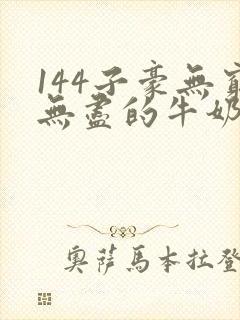 144子豪無窮
無盡的牛奶
奧薩馬本拉登